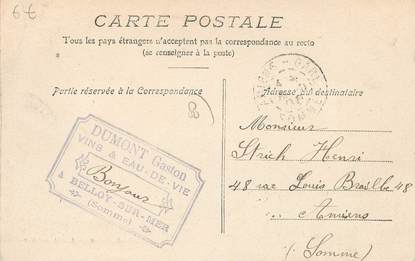 6€
CARTE POSTALE
Tous les pays étrangers n'acceptent pas la correspondance au recto
(se renseigner à la poste)
Partie réservée à la Correspondance
Adresse du destinataire
GARE
SOMME
8
DUMONT Gaston
VINS & EAU-DE-VIE
Bonjour
à BELLOY-SUR-MER
(Somme)
Monsieur
Strich Henri
48 rue Louis Braille 48
Amiens
(Somme)